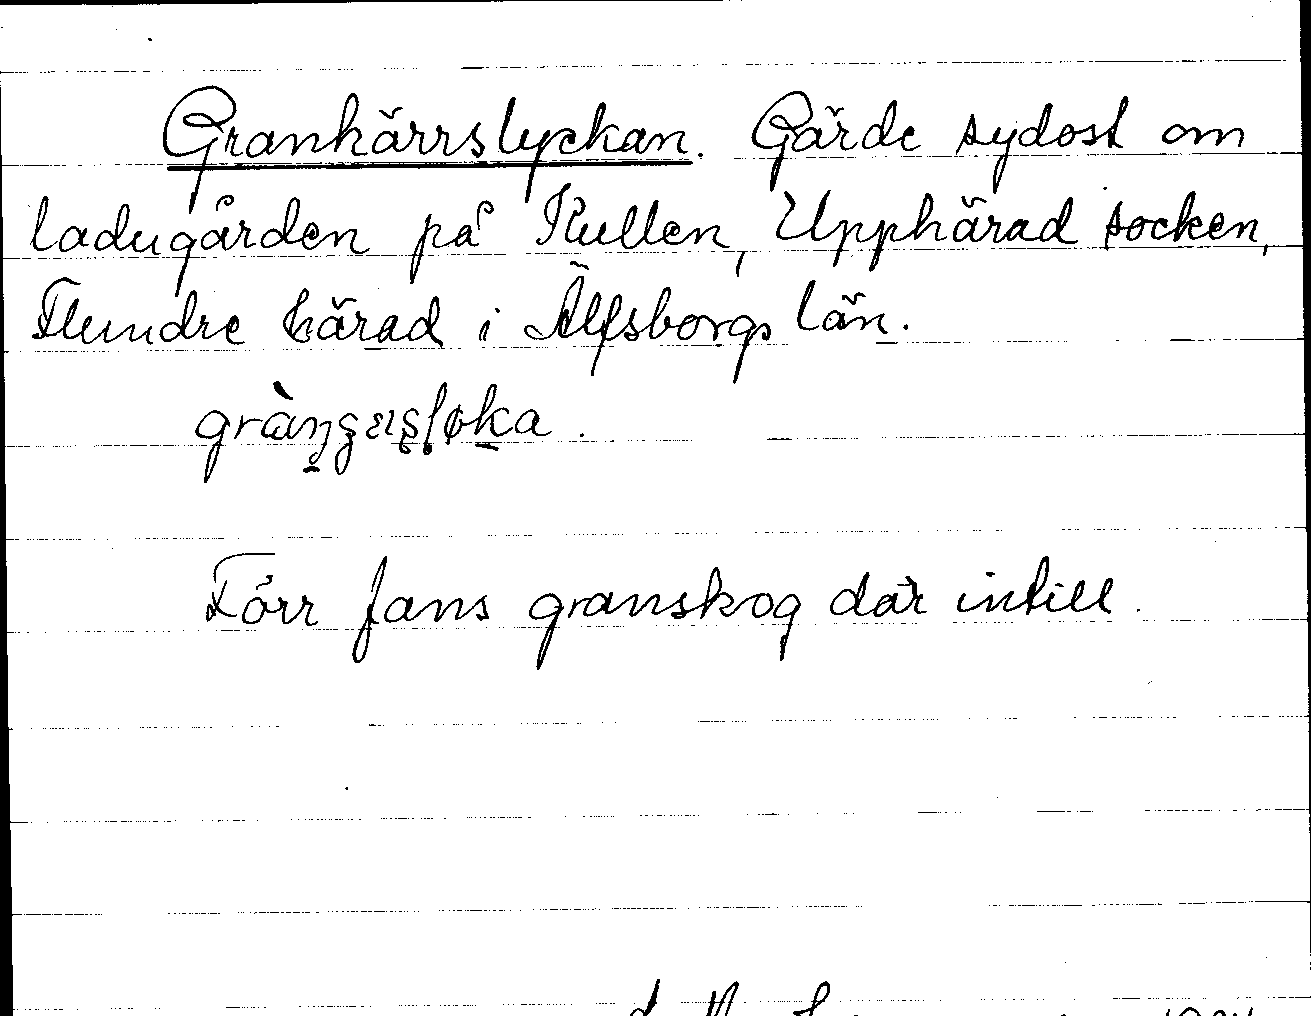 Grankärrslyckan. Gärde sydost om
ladugården på Kullen, Upphärad socken,
Flundre härad i Älfsborgs län.
Förr fans granskog där intill.